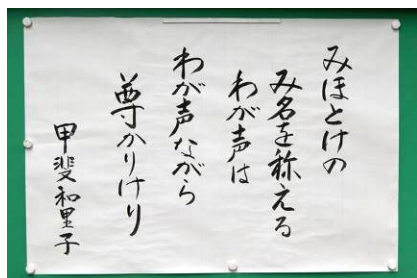 みほとけの
み名を称える
わが声は
わが声ながら
尊かりけり
甲斐和里子